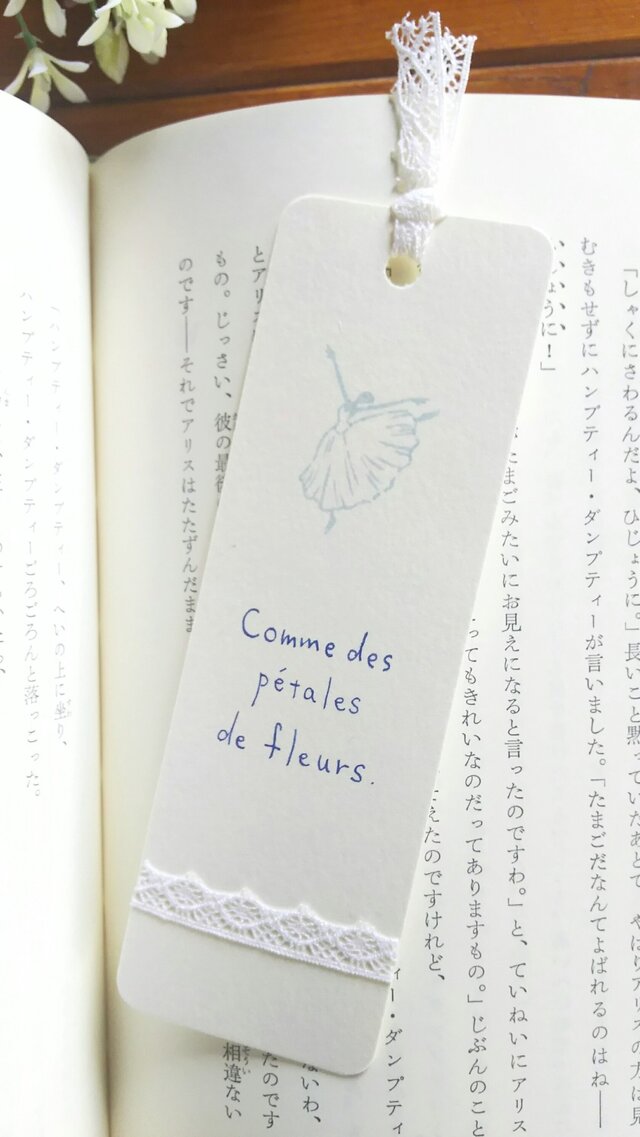 Comme des
pétales
de fleurs.
「しゃくにさわるんだよ、ひじょうに。」長いこと黙っていたあとで、やはりアリスの方は見
むきもせずにハンプティー・ダンプティーが言いました。「たまごだなんてよばれるのはね――
ょうに！」
たまごみたいにお見えになると言ったのですわ。」と、ていねいにアリス
ってもきれいなのだってありますもの。」じぶんのこと
えたのですけれど、
ィー・ダンプティ
ないわ、
とアリ たのです
もの。じっさい、彼の最 相違ない
のです――それでアリスはたたずんだまま
ハンプティー・ダンプティー、へいの上に坐り、
ハンプティー・ダンプティーごろごろんと落っこった。